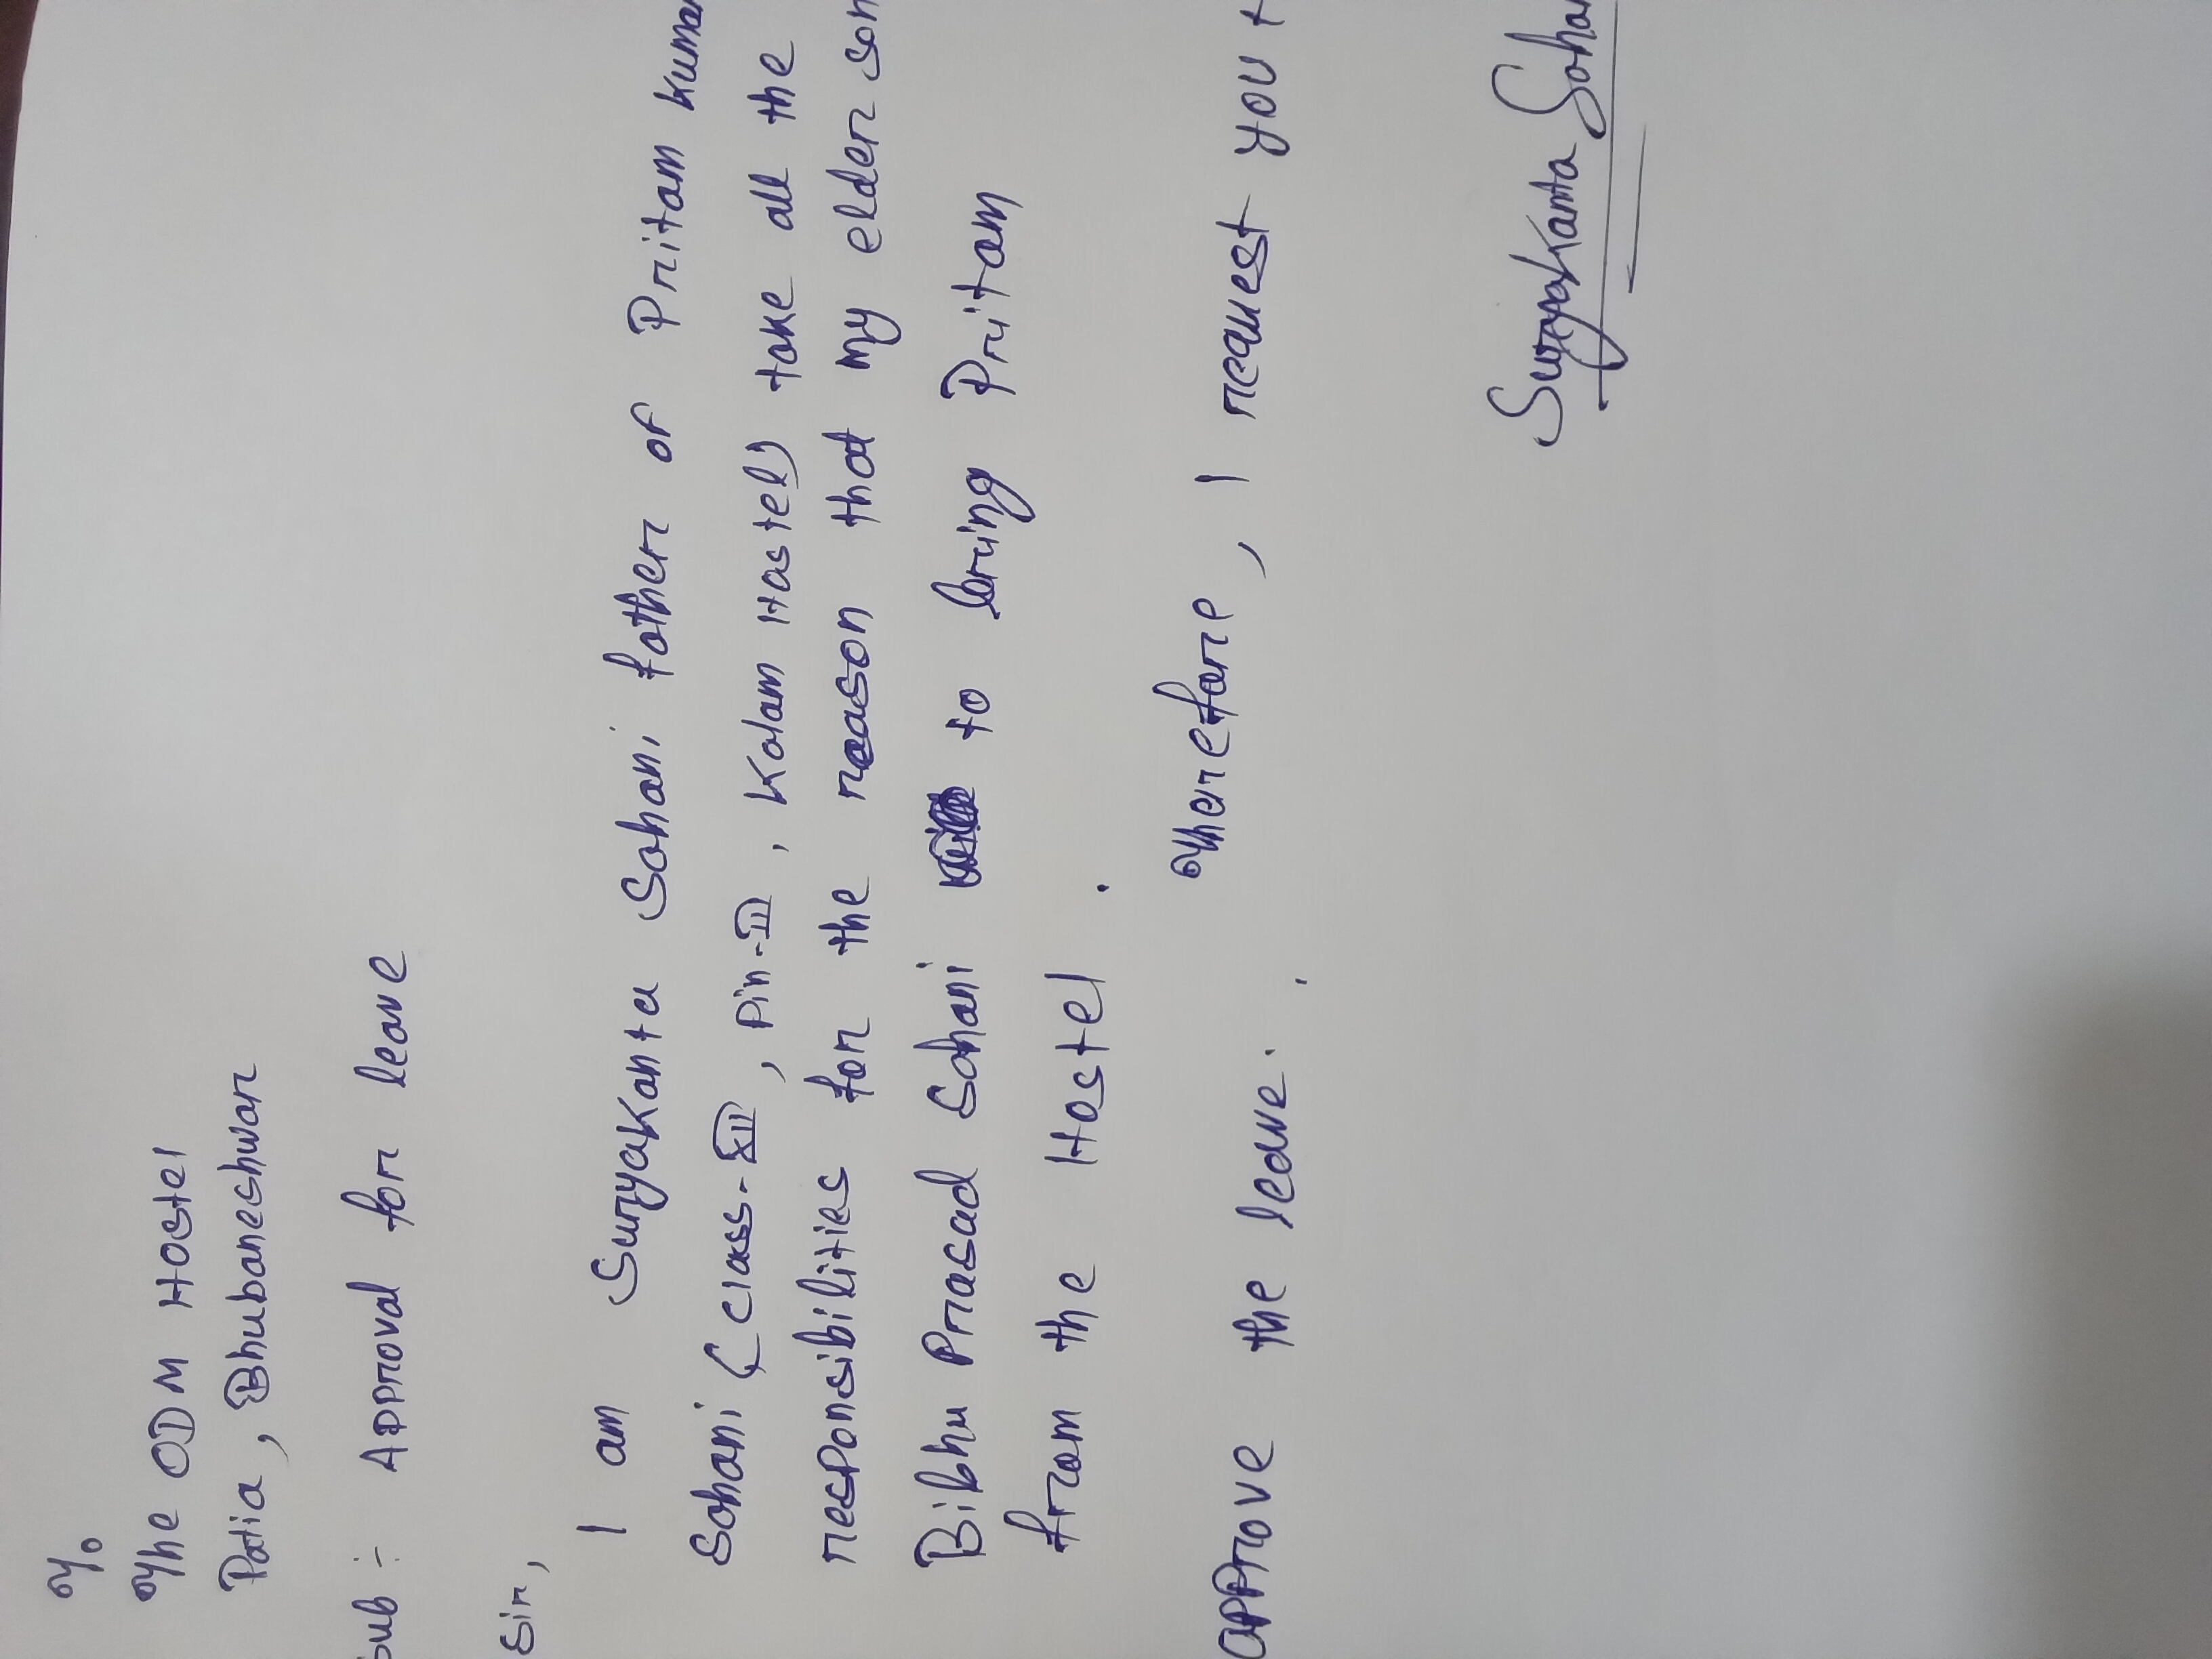 To
The ODM Hostel
Patia, Bhubaneshwar
Sub :- Approval for leave
Sir,
I am Suryakanta Sahani father of Pritam Kumar
Sahani (Class-XII, Pin-II, Kalam Hostel) take all the
responsibilities for the reason that my elder son
Bibhu Prasad Sahani to bring Pritam
from the Hostel.
Therefore, I request you t
approve the leave.
Suryakanta Sahani